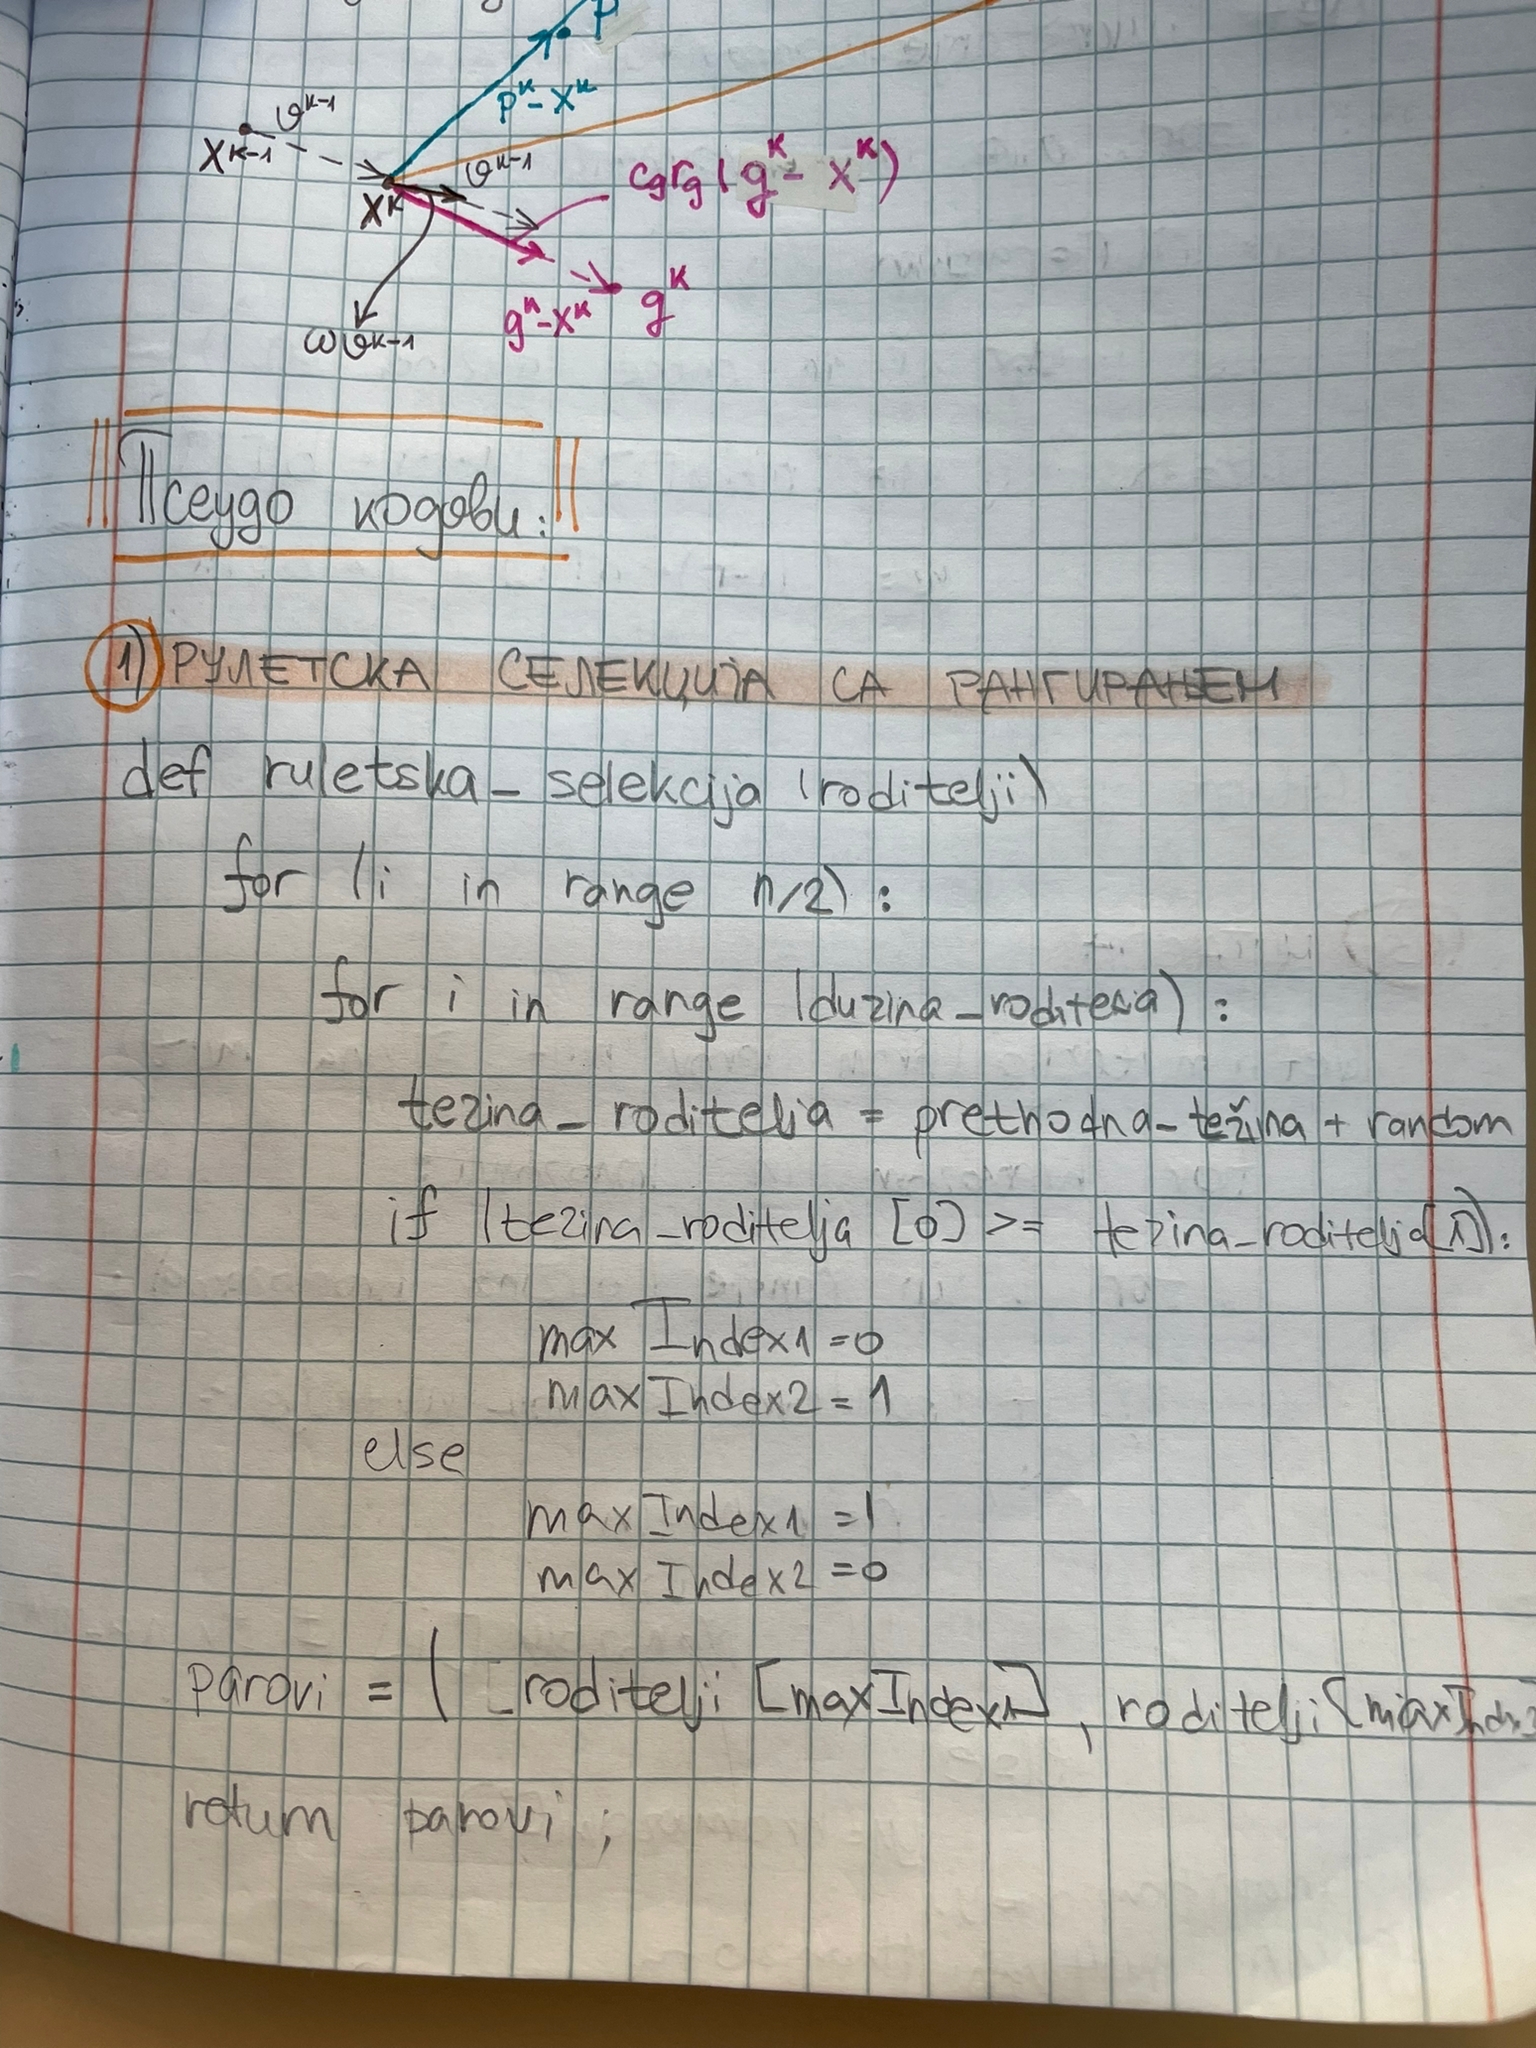 P
pᴷ - xᴷ
ϑᴷ⁻¹
xᴷ⁻¹
ϑᴷ⁻¹
cgrg (gᴷ - xᴷ)
xᴷ
gᴷ-xᴷ gᴷ
ωϑᴷ⁻¹
Псеудо кодови:
1) РУЛЕТСКА СЕЛЕКЦИЈА СА РАНГИРАЊЕМ
def ruletska_selekcija (roditelji)
for (i in range n/2):
for i in range (duzina_roditelja):
tezina_roditelja = prethodna_težina + random
if (tezina_roditelja [0] >= tezina_roditelja[1]):
max Index1 = 0
max Index2 = 1
else
max Index1 = 1
max Index2 = 0
parovi = ( [roditelji [maxIndex1], roditelji[maxIndx2
return parovi ;